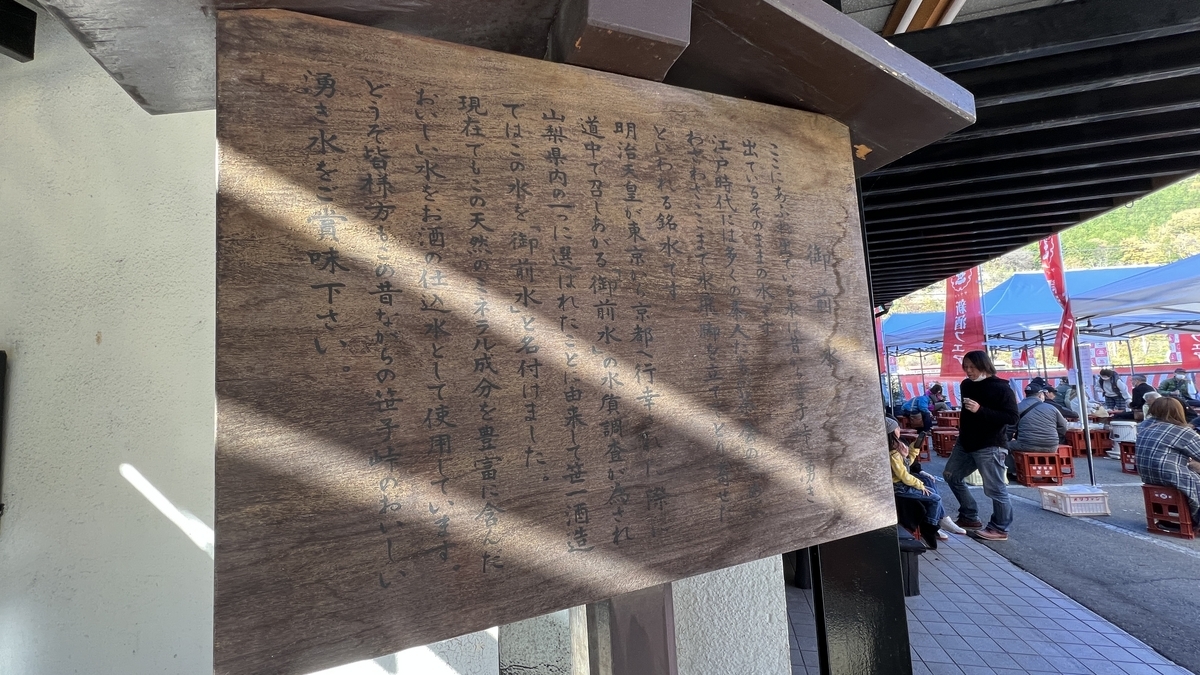 御前水
ここにあふれ出ている水は昔から笹子峠に湧き
出ているそのままの水です
江戸時代には多くの茶人
わざわざここまで水飛脚を立ててとり寄せし
といわれる銘水です
明治天皇が東京から京都へ行幸
道中で召しあがる御前水の水質調査が為され
山梨県内の一つに選ばれたことに由来して笹一酒造
ではこの水を「御前水」と名付けました。
現在でもこの天然のミネラル成分を豊富に含んだ
おいしい水をお酒の仕込水として使用しています。
どうぞ皆様方もこの昔ながらの笹子峠のおいしい
湧き水をご賞味下さい。
新酒フェア